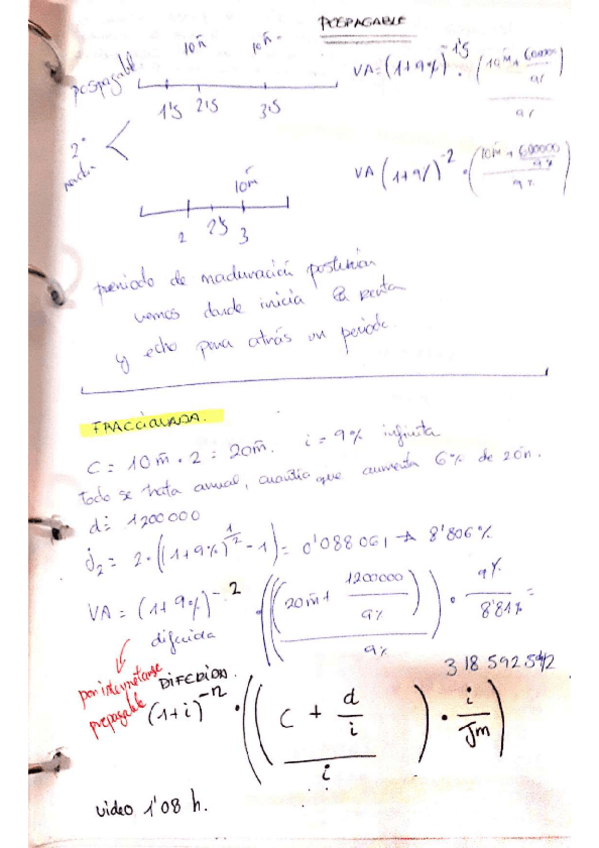 POSPAGABLE
10m̃ 10m̃
pospagable
1'5 2'5 3'5
VA = (1+9%)^-1'5 · ((10m̃ + 600000/9%)/9%)
2º
10m̃
2 2'5 3
VA (1+9%)^-2 · ((10m̃ + 600000/9%)/9%)
periodo de maduración posterior
vemos donde inicia la renta
y echo para atrás un periodo.
FRACCIONADA.
C = 10m̃ · 2 = 20m̃. i = 9% infinita
todo se trata anual, cuantía que aumenta 6% de 20m̃.
d = 1200000
j2 = 2·((1+9%)^1/2 - 1) = 0'088061 → 8'806%
VA = (1+9%)^-2 · (((20m̃ + 1200000/9%)/9%) · 9%/8'81% =
diferida
318592592
por interpretarse prepagable
DIFERIDA.
(1+i)^-n · (((C + d/i)/i) · i/Jm)
video 1'08 h.